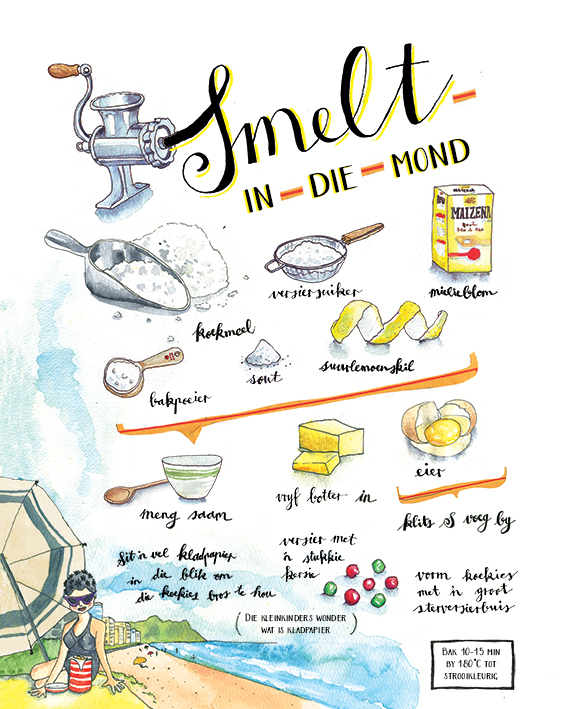 Smelt-
IN-DIE-MOND
MAIZENA
koekmeel
versiersuiker
mielieblom
bakpoeier
sout
suurlemoenskil
meng saam
vryf botter in
eier
klits & voeg by
Sit 'n vel kladpapier
in die blik om
die koekies bros te hou
(DIE KLEINKINDERS WONDER
WAT IS KLADPAPIER)
versier met
'n stukkie
kersie
vorm koekies
met 'n groot
sterversierbuis
BAK 10-15 MIN
BY 180°C TOT
STROOIKLEURIG